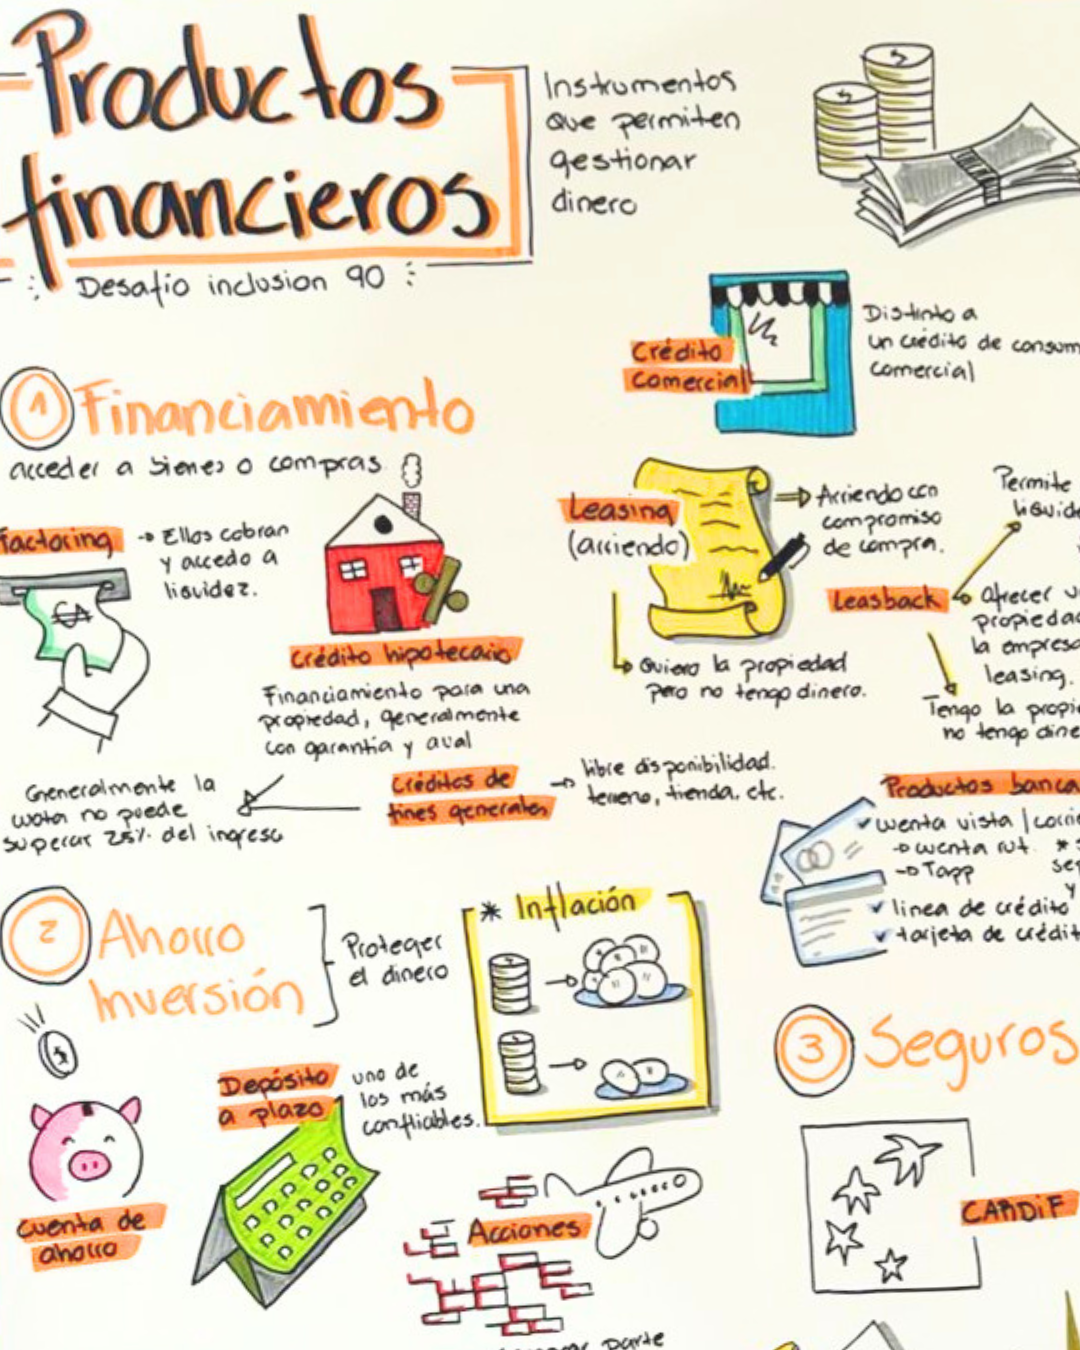 Productos
financieros
Desafío inclusion 90
Instrumentos
que permiten
gestionar
dinero
Crédito
comercial
Distinto a
un crédito de consum
comercial
1 Financiamiento
acceder a bienes o compras
factoring
→ Ellos cobran
y accedo a
liquidez.
Crédito hipotecario
Financiamiento para una
propiedad, generalmente
con garantía y aval
Leasing
(arriendo)
Arriendo con
compromiso
de compra.
Quiero la propiedad
pero no tengo dinero.
Leasback
Permite
liquide
ofrecer u
propiedad
la empresa
leasing.
Tengo la propie
no tengo dine
Créditos de
fines generales
→ libre disponibilidad.
terreno, tienda, etc.
Generalmente la
cuota no puede
superar 25% del ingreso
Productos banca
✓ cuenta vista | corrie
→ cuenta rut. *
→ Tapp
y
✓ linea de crédito
✓ tarjeta de crédit
2 Ahorro
Inversión
Proteger
el dinero
* Inflación
Depósito
a plazo
uno de
los más
confiables.
cuenta de
ahorro
Acciones
parte
3 Seguros
CARDIF